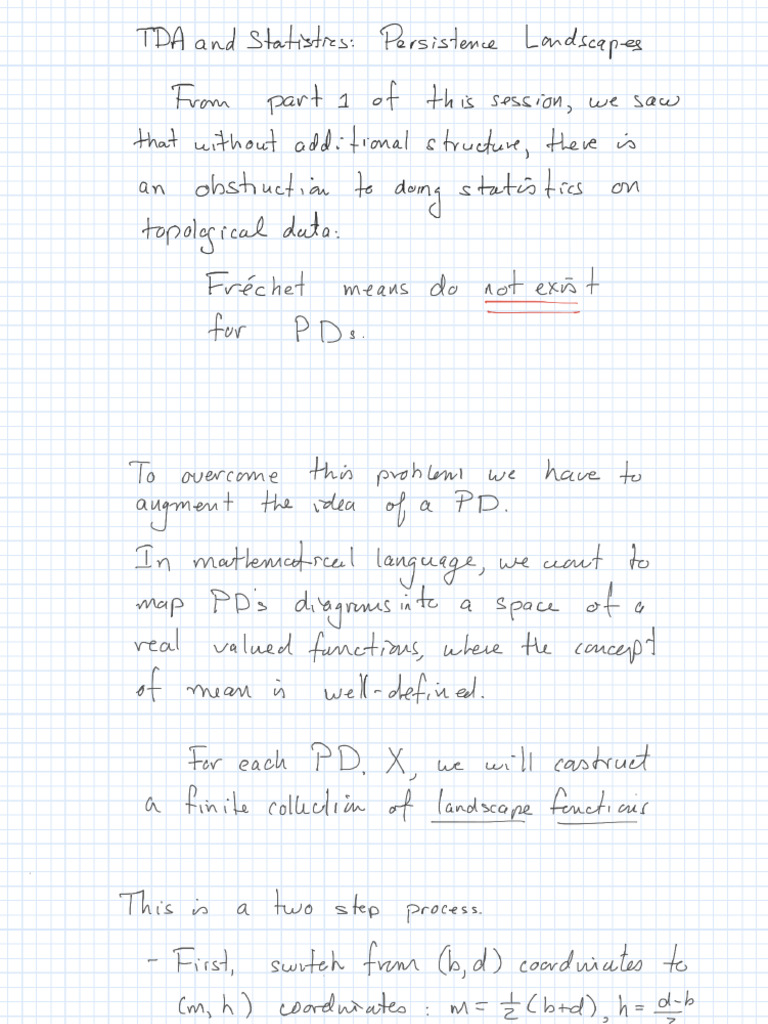 TDA and Statistics: Persistence Landscapes
From part 1 of this session, we saw
that without additional structure, there is
an obstruction to doing statistics on
topological data:
Fréchet means do not exist
for PDs.
To overcome this problem we have to
augment the idea of a PD.
In mathematical language, we want to
map PD's diagrams into a space of a
real valued functions, where the concept
of mean is well-defined.
For each PD, X, we will castruct
a finite collection of landscape functions
This is a two step process.
- First, switch from (b,d) coordinates to
(m,h) coordinates: m = 1/2 (b+d), h = d-b/2